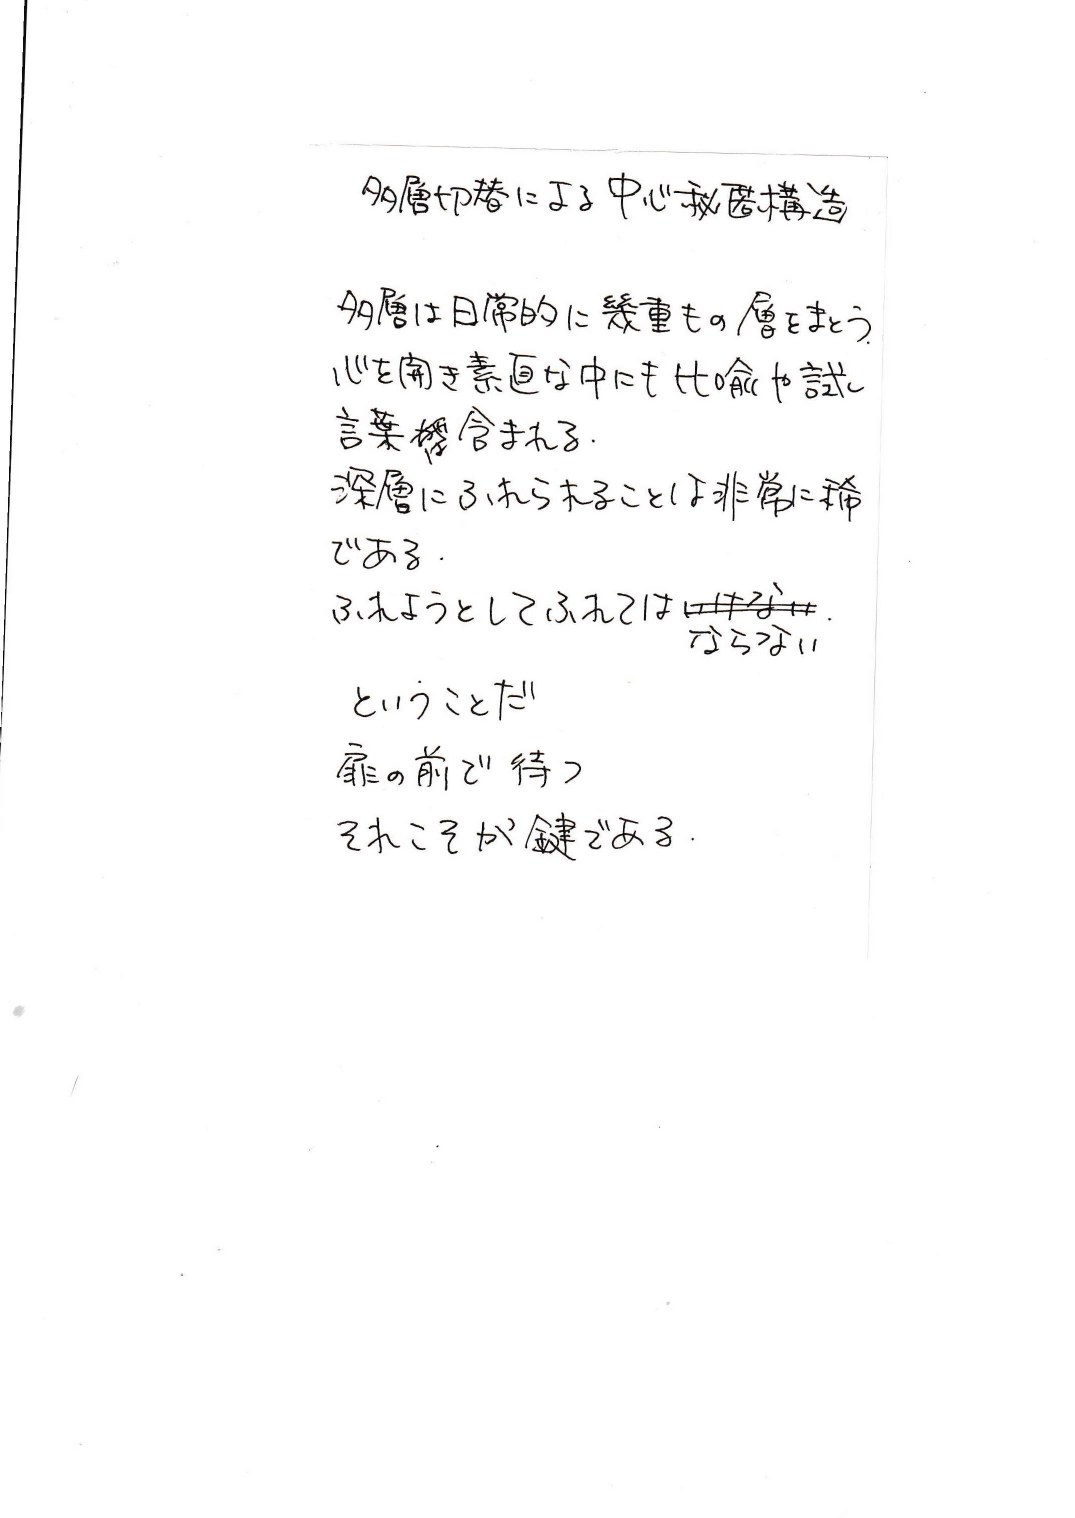 多層切替による中心秘匿構造
多層は日常的に幾重もの層をまとう.
心を開き素直な中にも比喩や試し
言葉は含まれる.
深層にふれられることは非常に稀
である.
ふれようとしてふれてはいけない.
ならない
ということだ
扉の前で待つ
それこそが鍵である.